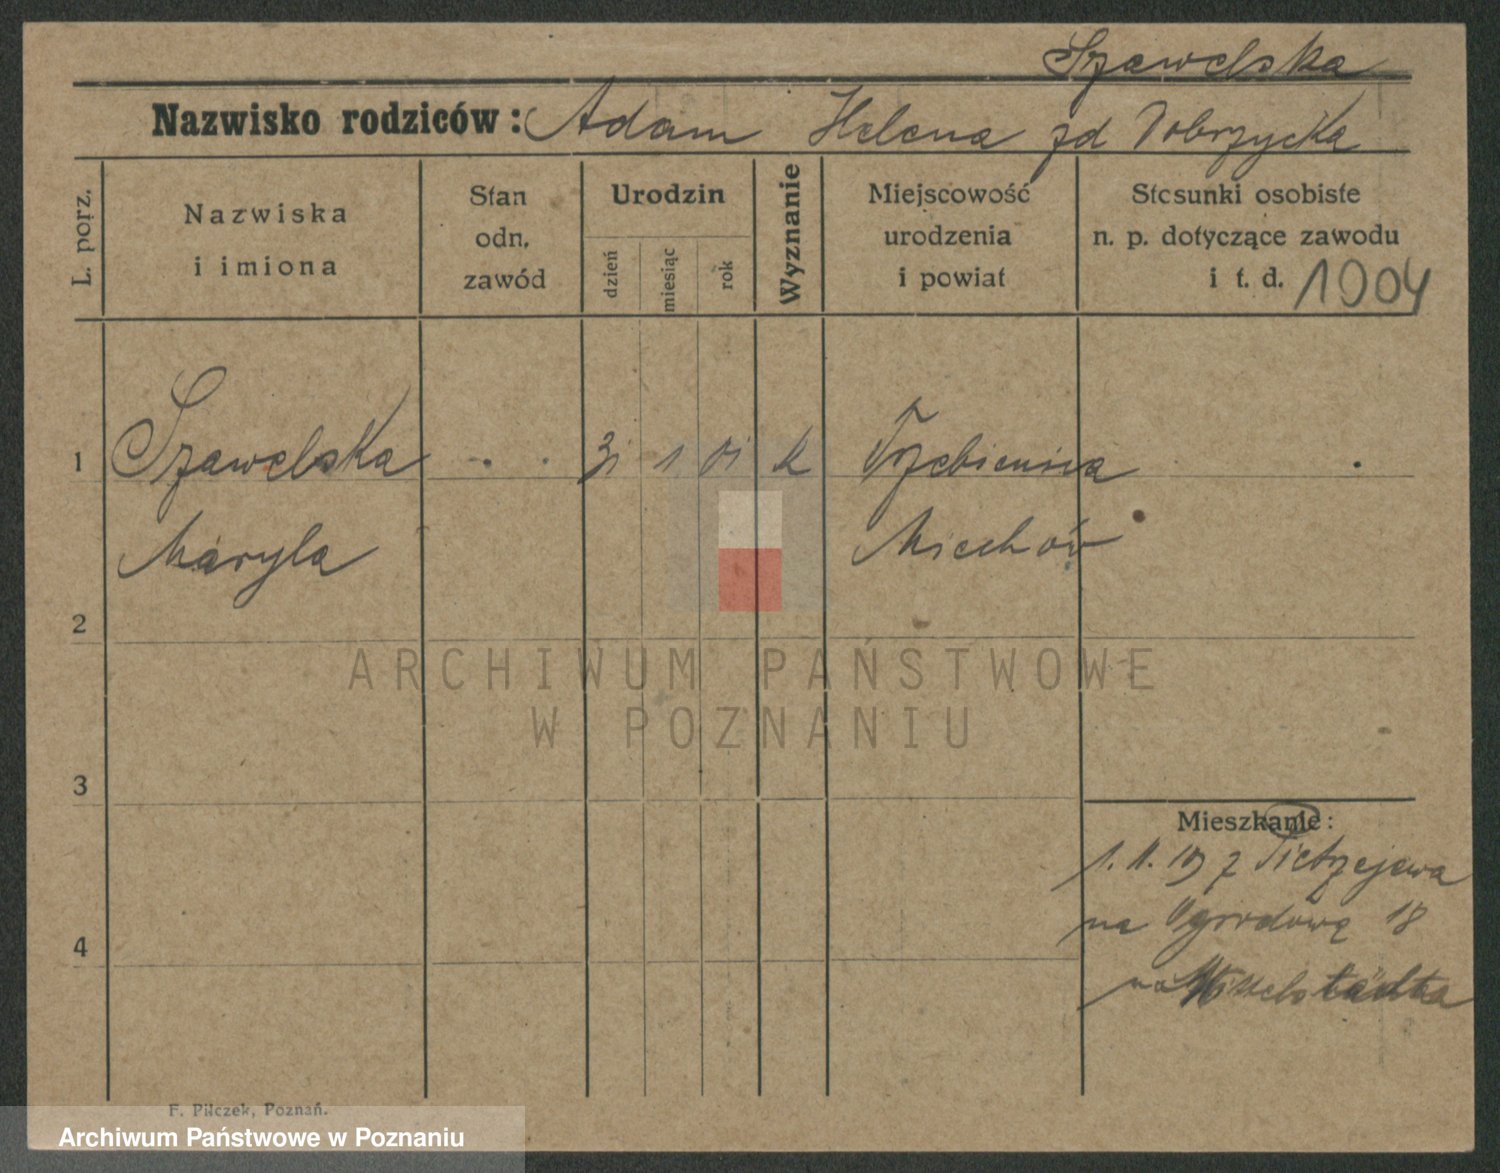 Szawelska
Nazwisko rodziców: Adam Helena zd Dobrzycka
L. porz.
Nazwiska
i imiona
Stan
odn.
zawód
Urodzin
dzień
miesiąc
rok
Wyznanie
Miejscowość
urodzenia
i powiat
Stosunki osobiste
n. p. dotyczące zawodu
i t. d. 1904
1 Szawelska 31 1 01 k
Maryla Miechów
2
ARCHIWUM PAŃSTWOWE
W POZNANIU
3
Mieszkanie:
1. 11. 19 z
na Ogrodową 18
4
na
F. Pilczek, Poznań.
Archiwum Państwowe w Poznaniu